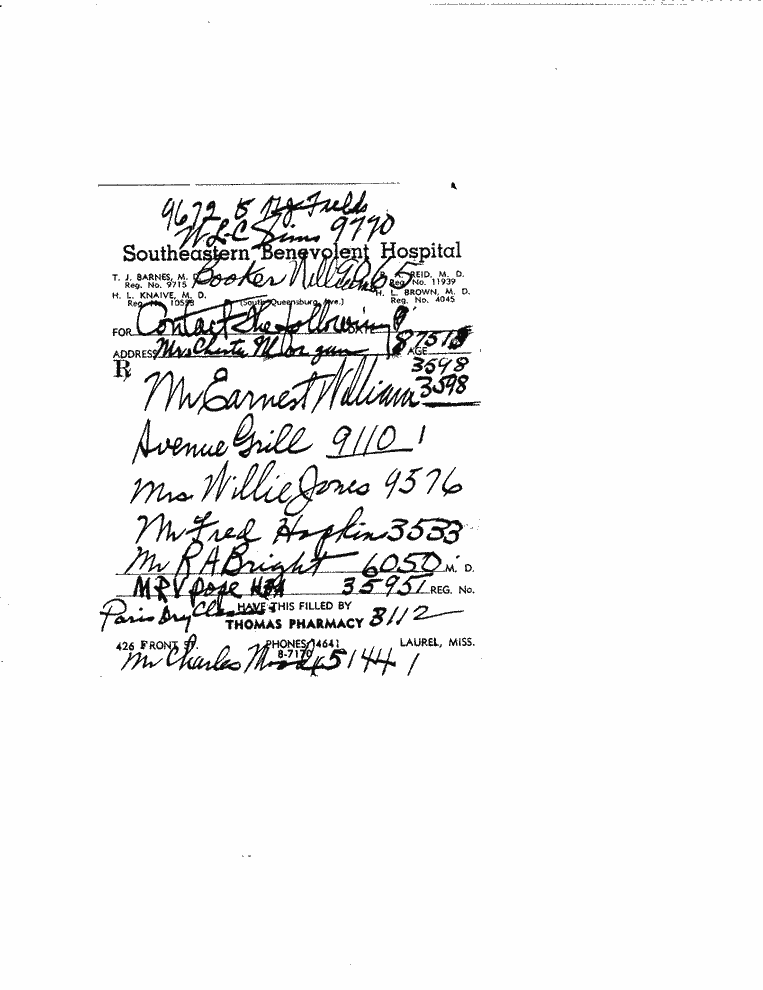 9672 Fields
W L C Sims 9770
Southeastern Benevolent Hospital
Booker
T. J. BARNES, M. REID, M. D.
Reg. No. 9715 Reg. No. 11939
H. L. KNAIVE, M. D. H. L. BROWN, M. D.
Reg. No. (South Queensburg Ave.) Reg. No. 4045
FOR Contact the following
ADDRESS Mrs Morgan AGE
3598
℞
Mr Earnest William 3598
Avenue Grill 9110
Mrs. Willie Jones 9576
Mr Fred Hopkin 3533
Mr R A Bright 6050 M. D.
M R V Pope 35951 REG. No.
Paris Dry HAVE THIS FILLED BY
THOMAS PHARMACY 8112
426 FRONT ST. PHONES 14641 LAUREL, MISS.
8-7170
Mr Charles 5144